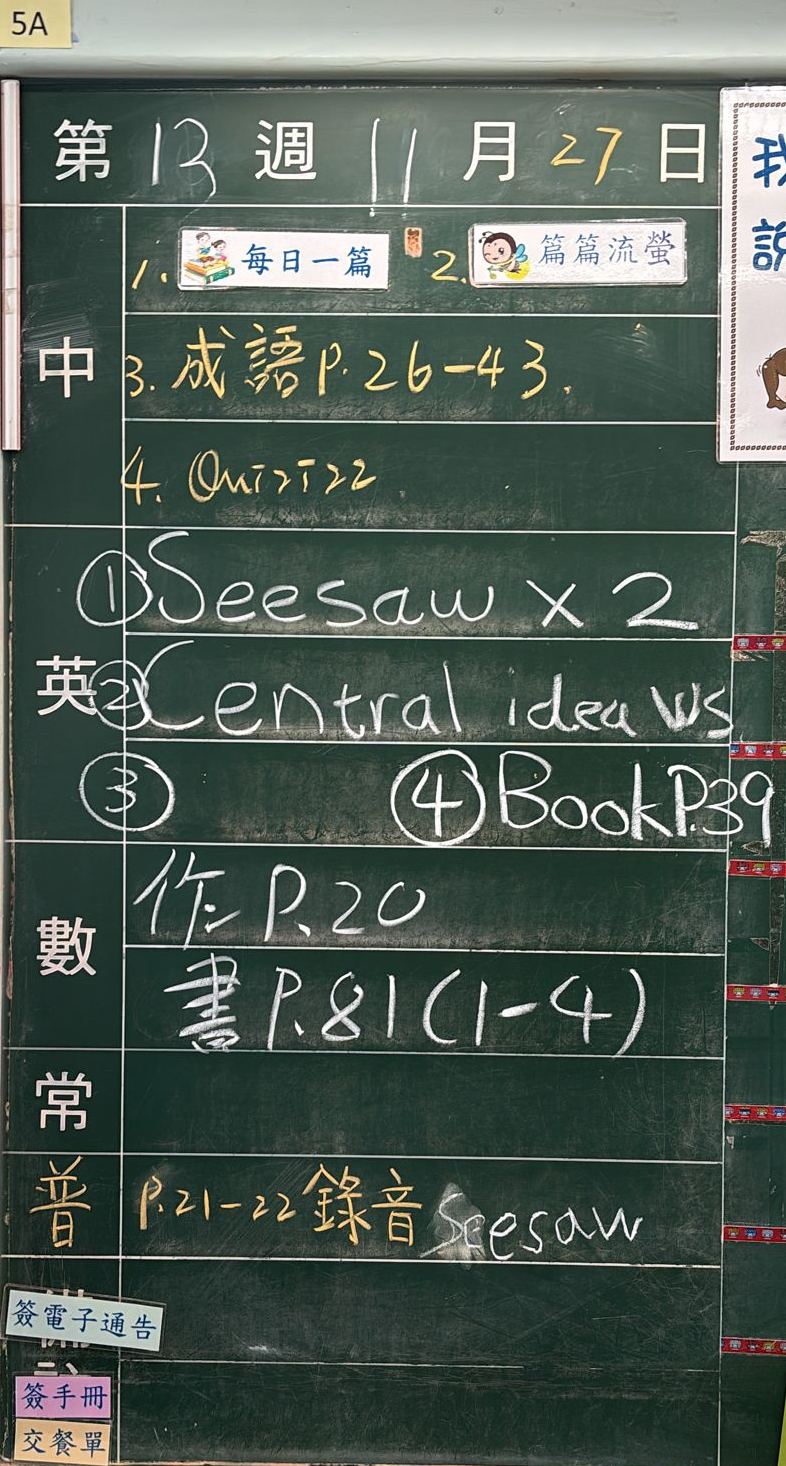 5A
第 13 週 11 月 27 日
中
1. 每日一篇 2. 篇篇流螢
3. 成語 P.26-43.
4. Quizizz
英
① Seesaw x 2
② Central idea WS
③ ④ Book P.39
數
作 P.20
書 P.81(1-4)
常
普 P.21-22 錄音 Seesaw
簽電子通告
簽手冊
交餐單
我
說